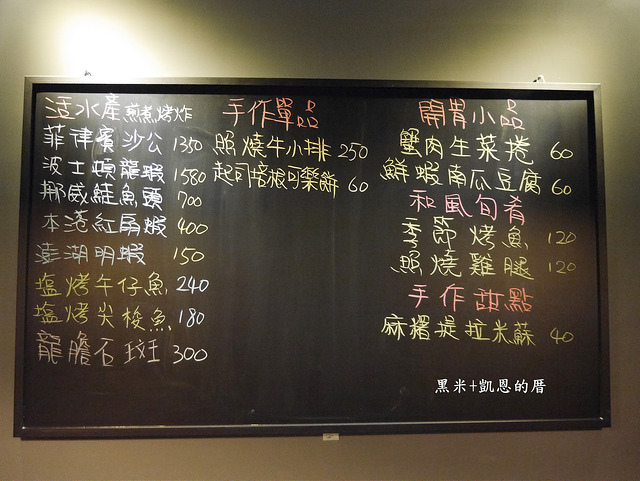 活水產 煎煮烤炸
菲律賓沙公 1350
波士頓龍蝦 1580
挪威鮭魚頭 700
本港紅扇蝦 400
澎湖明蝦 150
塩烤午仔魚 240
塩烤尖梭魚 180
龍膽石斑 300
手作單品
照燒牛小排 250
起司培根可樂餅 60
開胃小品
蟹肉生菜捲 60
鮮蝦南瓜豆腐 60
和風旬肴
季節烤魚 120
照燒雞腿 120
手作甜點
麻糬提拉米蘇 40
黑米+凱恩的厝